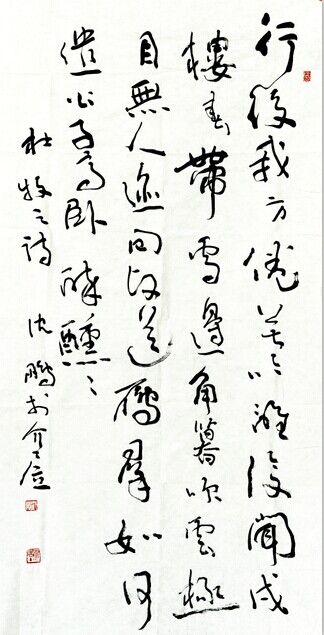 行役我方倦苦吟誰復聞戍
樓春帶雪邊角暮吹雲極
目無人迹回頭送雁群如何
遣公子高卧醉醺々
杜牧之詩 沈鵬於介居